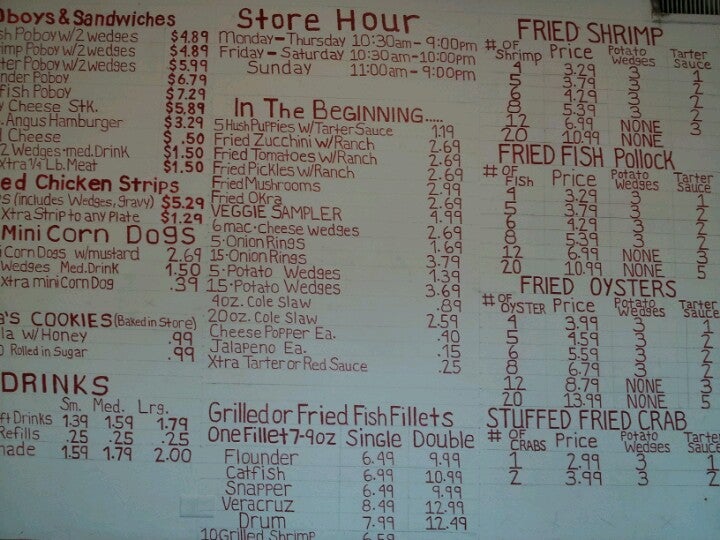 oboys & Sandwiches
sh Poboy w/2 wedges $4.89
imp Poboy w/2 wedges $4.89
ter Poboy w/2 wedges $5.99
nder Poboy $6.79
fish Poboy $7.29
y Cheese Stk. $5.89
. Angus Hamburger $3.29
l Cheese $.50
2 Wedges-med.Drink $1.50
xtra 1/4 Lb. Meat $1.50
ed Chicken Strips
s (includes Wedges, gravy) $5.29
Xtra Strip to any Plate $1.29
Mini Corn Dogs
i Corn Dogs w/mustard 2.69
Wedges Med. Drink 1.50
Xtra mini Corn Dog .39
a's COOKIES (Baked in Store)
la w/Honey .99
o Rolled in Sugar .99
DRINKS
Sm. Med. Lrg.
ft Drinks 1.39 1.59 1.79
Refills .25 .25 .25
nade 1.59 1.79 2.00
Store Hour
Monday-Thursday 10:30am-9:00pm
Friday-Saturday 10:30am-10:00pm
Sunday 11:00am-9:00pm
In The Beginning.....
5 Hush Puppies w/Tarter Sauce 1.19
Fried Zucchini w/Ranch 2.69
Fried Tomatoes w/Ranch 2.69
Fried Pickles w/Ranch 2.69
Fried Mushrooms 2.99
Fried Okra 2.69
VEGGIE SAMPLER 4.99
6 mac-cheese wedges 2.69
5-Onion Rings 1.69
15-Onion Rings 3.79
5-Potato Wedges 1.39
15-Potato Wedges 3.69
4oz. Cole Slaw .89
20oz. Cole Slaw 2.59
Cheese Popper Ea. .40
Jalapeno Ea. .15
Xtra Tarter or Red Sauce .25
Grilled or Fried Fish Fillets
One Fillet 7-9oz Single Double
Flounder 6.49 9.99
Catfish 6.99 10.99
Snapper 6.49 9.99
Veracruz 8.49 12.99
Drum 7.99 12.49
10 Grilled Shrimp 6.59
FRIED SHRIMP
# OF Shrimp Price Potato Wedges Tarter Sauce
4 3.29 3 1
5 3.79 3 2
6 4.29 3 2
8 5.39 3 2
12 6.99 NONE 3
20 10.99 NONE
FRIED FISH Pollock
# OF Fish Price Potato Wedges Tarter Sauce
4 3.29 3 1
5 3.79 3 2
6 4.29 3 2
8 5.39 3 2
12 6.99 NONE 3
20 10.99 NONE 5
FRIED OYSTERS
# OF OYSTER Price Potato Wedges Tarter Sauce
4 3.99 3 1
5 4.59 3 2
6 5.59 3 2
8 6.79 3 2
12 8.79 NONE 3
20 13.99 NONE 5
STUFFED FRIED CRAB
# OF CRABS Price Potato Wedges Tarter Sauce
1 2.99 3 1
2 3.99 3 2